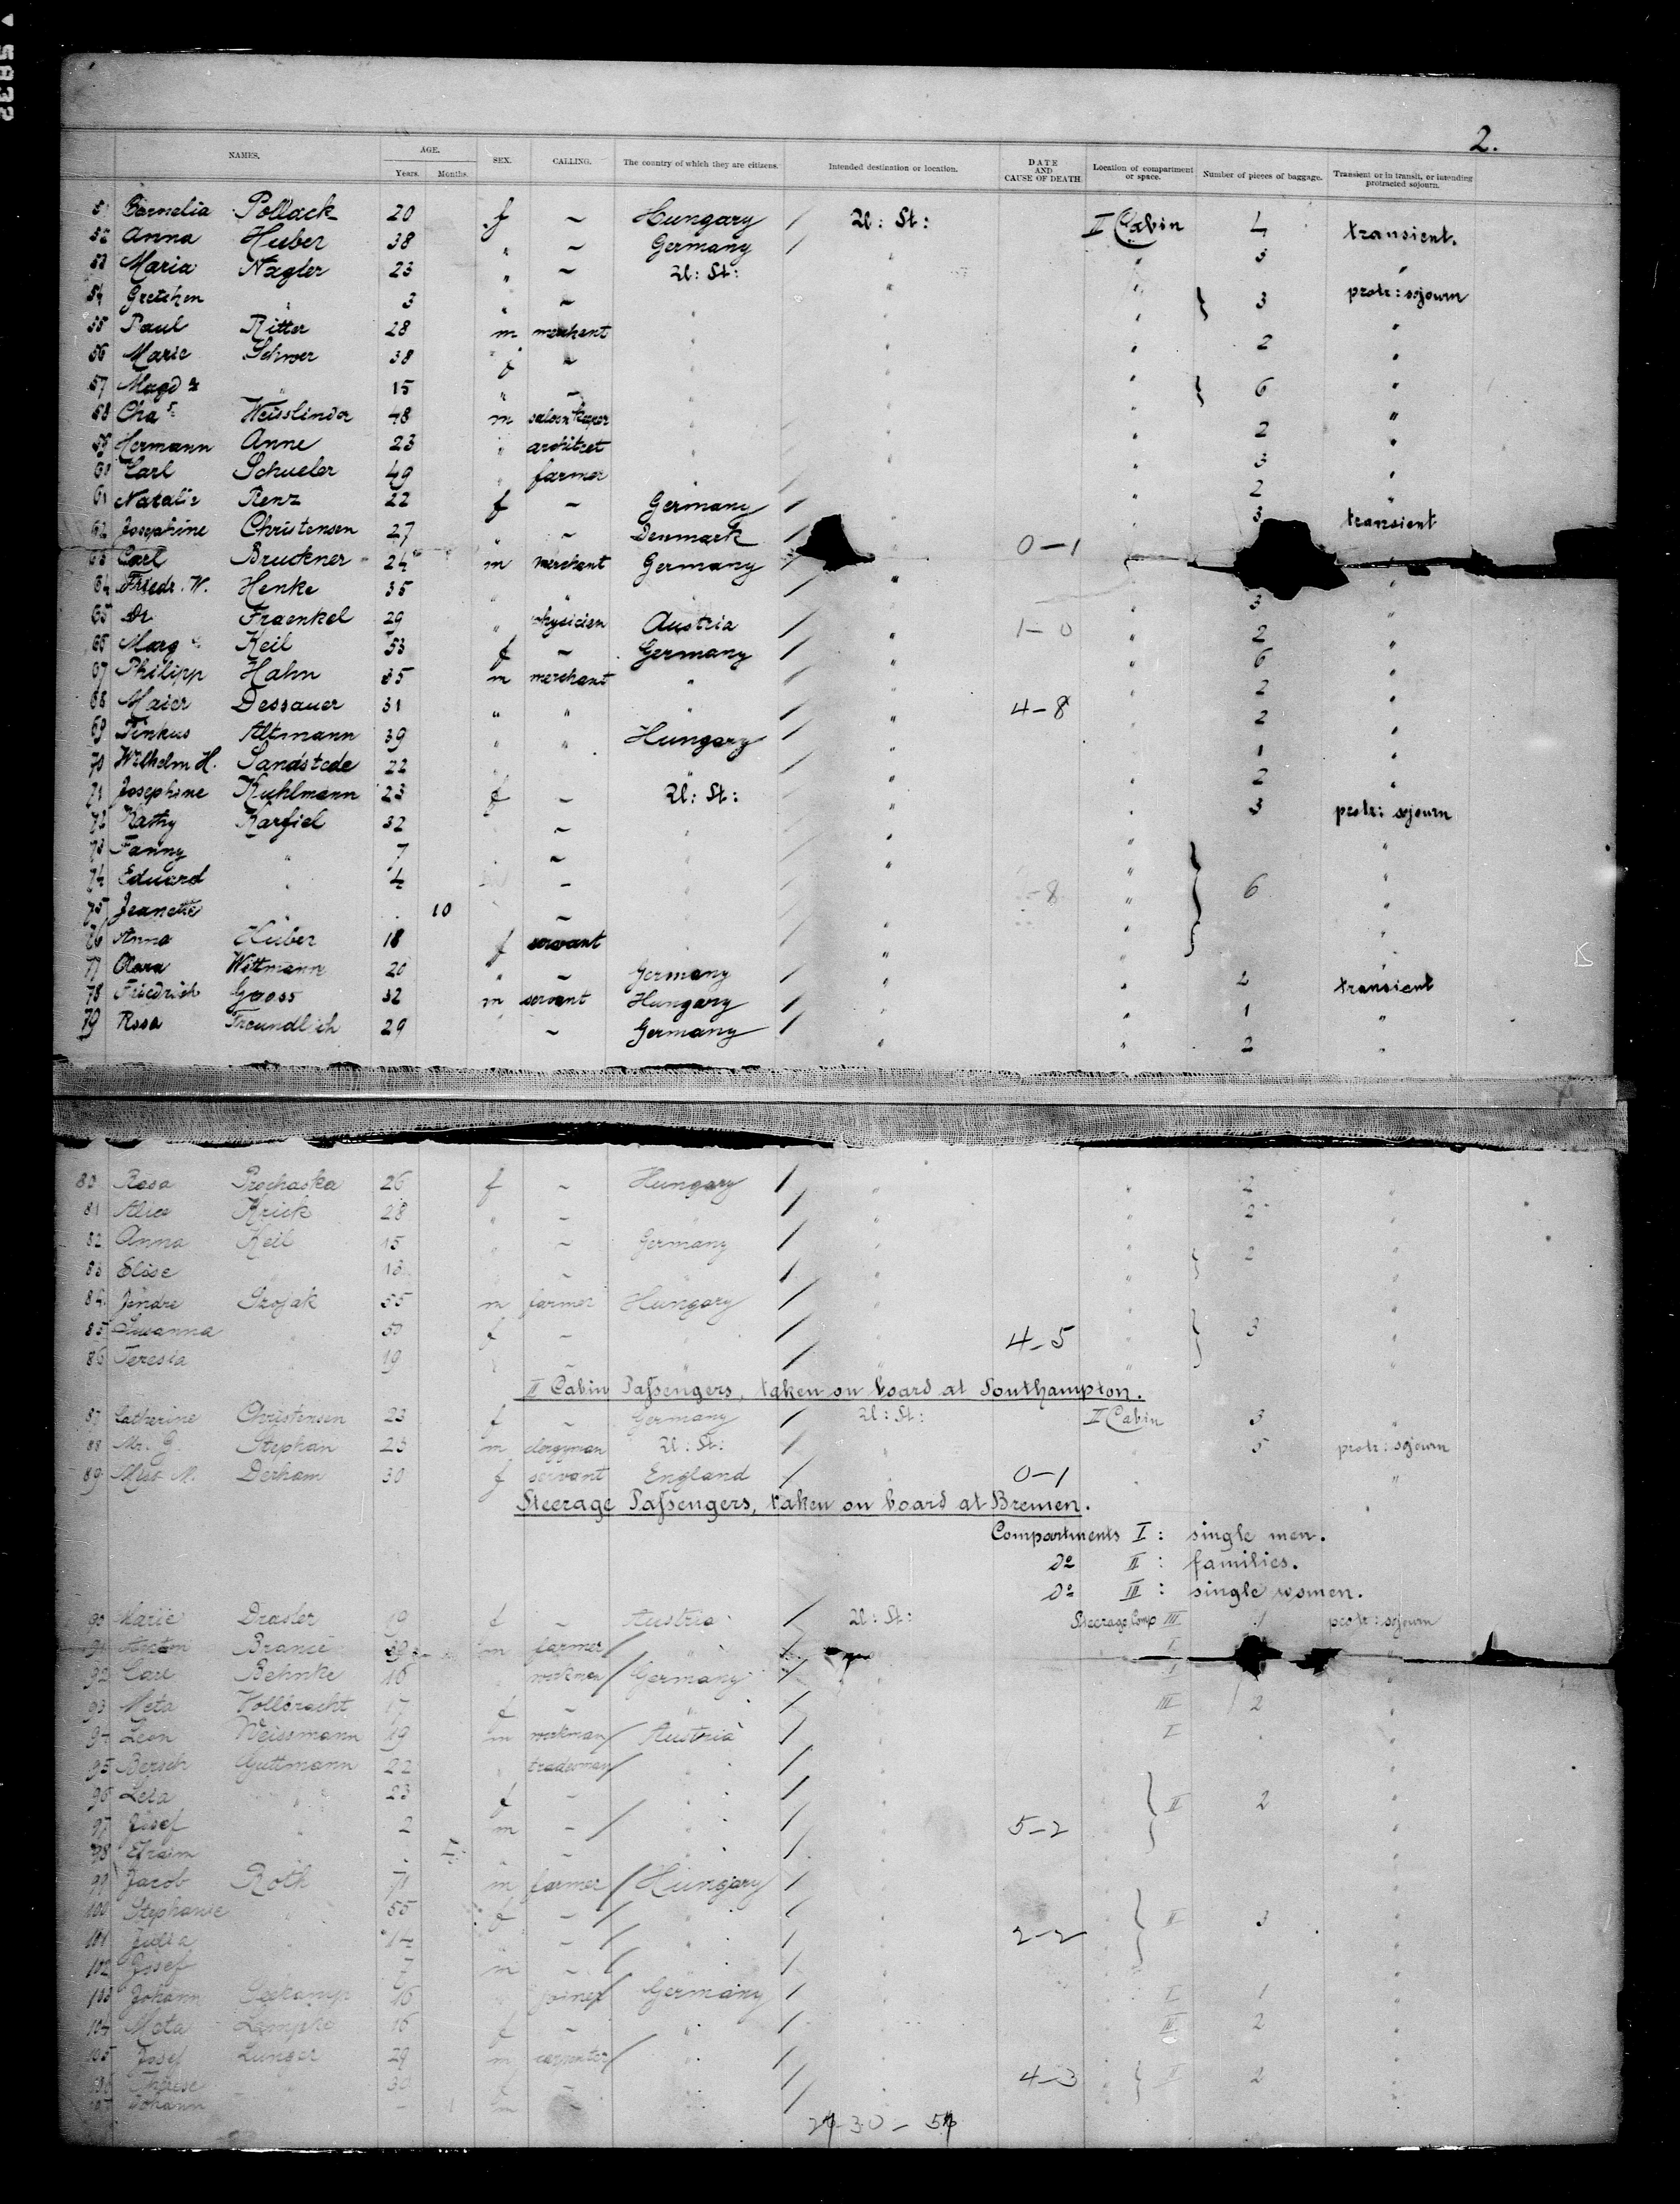 2.
NAMES. AGE. SEX. CALLING. The country of which they are citizens. Intended destination or location. DATE AND CAUSE OF DEATH. Location of compartment or space. Number of pieces of baggage. Transient or in transit, or intending protracted sojourn.
Years. Months.
51 Cornelia Pollack 20 f ~ Hungary / U: St: II Cabin 4 transient.
52 Anna Huber 38 " ~ Germany / " " 3 "
53 Maria Nagler 23 " ~ U: St: " " protr: sojourn
54 Gretchen " 3 " ~ " " " } 3 "
55 Paul Ritter 28 m merchant " " " 2 "
56 Marie Schwer 38 f ~ " " "
57 Magda " 15 " ~ " " " } 6 "
58 Chas. Weisslinder 48 m saloon keeper " " " 2 "
59 Hermann Anne 23 " architect " " " 3 "
60 Carl Schueler 49 " farmer " " " 2 "
61 Natalie Renz 22 f ~ Germany / " " 3 transient
62 Josephine Christensen 27 " ~ Denmark / 0-1
63 Carl Bruckner 24 m merchant Germany /
64 Friedr. W. Henke 35 " " " / " " 3 "
65 Dr. Fraenkel 29 " physician Austria / " 1-0 " 2 "
66 Marg Keil 53 f ~ Germany / " " 6 "
67 Philipp Hahn 35 m merchant " / " " 2 "
68 Maier Dessauer 31 " " " / " 4-8 " 2 "
69 Pinkus Altmann 39 " " Hungary / " " 1 "
70 Wilhelm H. Sandstede 22 " " " / " " 2 "
71 Josephine Kuhlmann 23 f ~ U: St: " " 3 protr: sojourn
72 Kathy Karfiel 32 ~ " " " "
73 Fanny " 7 ~ " " " "
74 Eduard " 4 - " " } 6 "
75 Jeanette 10 ~ " " "
76 Anna Huber 18 f servant " " " "
77 Clara Wittmann 20 " ~ Germany / " " 2 transient
78 Friedrich Gross 32 m servant Hungary / " " 1 "
79 Rosa Freundlich 29 ~ Germany / " " 2 "
80 Rosa Prochaska 26 f ~ Hungary / " " 2 "
81 Alice Krick 28 " ~ " / " " 2 "
82 Anna Keil 15 " ~ Germany / " " } 2 "
83 Elise " 13 " ~ " / " " "
84 Jendre Szojak 55 m farmer Hungary / " " "
85 Susanna " 50 f ~ " / " 4-5 " } 3 "
86 Teresia " 19 " ~ " / " " "
II Cabin Passengers, taken on board at Southampton.
87 Catherine Christensen 23 f ~ Germany / U: St: II Cabin 3 "
88 Mr. G. Stephan 25 m clergyman U: St: / " " 5 protr: sojourn
89 Miss M. Derham 30 f servant England / 0-1 "
Steerage Passengers, taken on board at Bremen.
Compartments I: single men.
do II: families.
do III: single women.
90 Marie Drasler 19 f ~ Austria / U: St: Steerage Comp III 1 protr: sojourn
91 Anton Brancic 39 m farmer " / I
92 Carl Behnke 16 " workman Germany / I "
93 Meta Vollbracht 17 f ~ " / III 2 "
94 Leon Weissmann 19 m workman Austria / I "
95 Bersch Guttmann 22 " tradesman " / "
96 Lea " 23 f - " / } II 2 "
97 Josef " 2 m - " / 5-2 "
98 Efraim " ~ " /
99 Jacob Roth 71 m farmer Hungary / "
100 Stephanie " 55 f ~ " / } II 3 "
101 Julia " 14 " ~ " / 2-2 "
102 Josef " 7 m ~ " / "
103 Johann Seekamp 16 " joiner Germany / I 1 "
104 Meta Lampke 16 f ~ " / III 2 "
105 Josef Lunger 29 m carpenter " / "
106 Therese " 30 f ~ " / 4-3 } II 2 "
107 Johann m ~ /